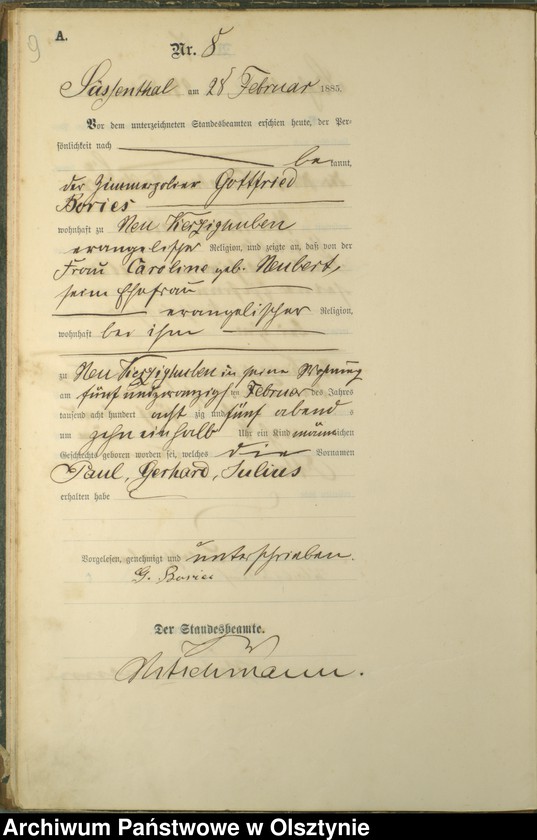 9
A.
Nr. 8
Sassenthal am 28 Februar 1885.
Vor dem unterzeichneten Standesbeamten erschien heute, der Per-
sönlichkeit nach
be kannt,
der Zimmerpolier Gottfried
Bories
wohnhaft zu Neu
evangelischer Religion, und zeigte an, daß von der
Frau Caroline geb. Neubert,
seine Ehefrau
evangelischer Religion,
wohnhaft bei ihm
zu Neu in seine Wohnung
am fünf und zwanzigst ten Februar des Jahres
tausend acht hundert acht zig und fünf abend s
um zehn einhalb Uhr ein Kind männlichen
Geschlechts geboren worden sei, welches die Vornamen
Paul, Gerhard, Julius
erhalten habe
Vorgelesen, genehmigt und unterschrieben.
G. Bories
Der Standesbeamte.
Archiwum Państwowe w Olsztynie